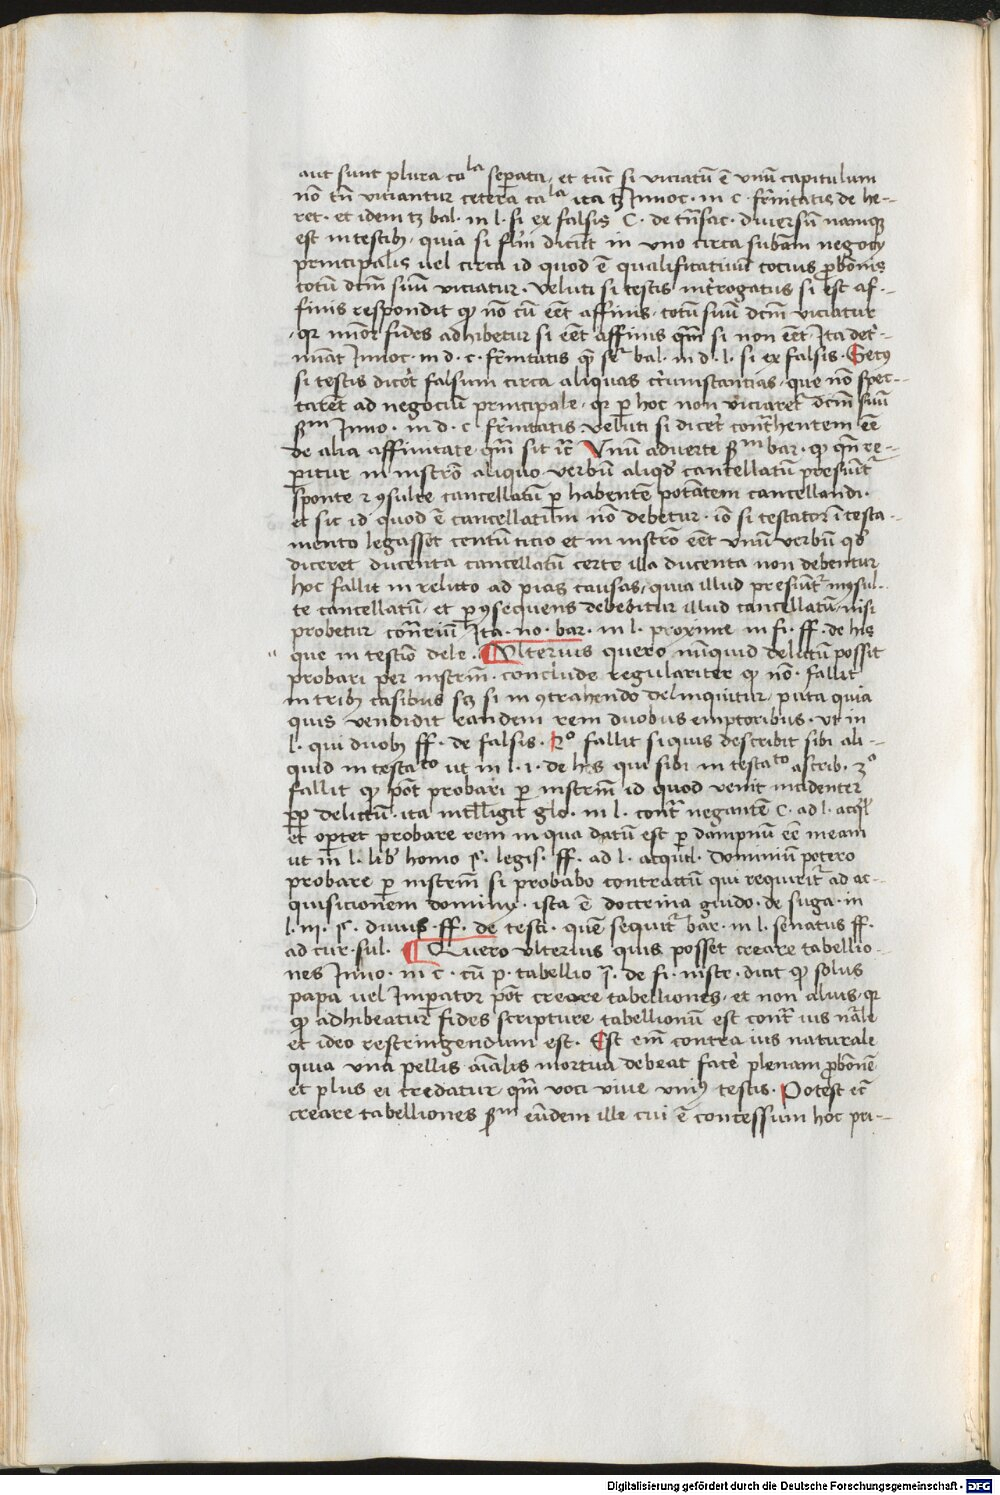 aut sunt plura ca^la sepata, et tuc si viciatu e vnu capitulum
no tn viciantur cetera ca^la ita tz Innoc. in c. fr̄nitatis de he-
ret. et idem tz bal. in l. si ex falsis C. de tn̄sac. diuersu namq
est in testib, quia si flm dicut in vno circa subam negocy
principalis uel circa id quod e qualificatiuu tocius ꝓbonis
totu dcm suu viciatur. Veluti si testis int̄rogatus si est af-
finis respondit qꝫ no cu eet affinis, totu suu dcm viciatur
qr minor fides adhibetur si eet affinis qm si non eet, Ita det-
minat Innoc. in d. c. fr̄nitatis q̄ sr bal. in d. l. si ex falsis. Secꝰ
si testis dicet falsum circa aliquas circumstantias, que no spec-
tarēt ad negociu principale, qr ꝑ hoc non viciaret dcm suu
ẜm Inno. in d. c. fr̄nitatis veluti si dicet cont̄hentem ee
de alia affinitate, qm sit ic Vnu aduerte ẜm bar. qꝫ qn̄ re-
peritur in instro aliquo verbu aliqd cancellatu presumit
sponte ⁊ ꝯsulte cancellatu ꝑ habente potatem cancellandi.
et sic id quod e cancellatum no debetur. io si testator i testa-
mento legasset centu titio et in instro eet vnu verbu qd
diceret ducenta cancellatu certe illa ducenta non debentur
hoc fallit in relicto ad pias causas, quia illud presumit inꝯsul-
te cancellatu, et ꝑ ꝯsequens debebitur illud cancellatu, nisi
probetur contrriu Ita. no. bar. in l. proxime in fi. ff. de his
que in testio dele. ¶ Vlterius quero nunquid delictu possit
probari per instrm. conclude regulariter qꝫ no. fallit
in trib casibus scꝫ si in ꝯtrahendo delinquitur, puta quia
quis vendidit eandem rem duobus emptoribus. Vt in
l. qui duob ff. de falsis. 2° fallit si quis describit sibi ali-
quid in testa^to ut in l. 1. de his qui sibi in testa^to ascrib. 3°
fallit qꝫ pot probari ꝑ instrm id quod venit incidenter
ꝓp delictu. ita intlligit glo. in l. cont̄ negante C. ad l. acql
et oportet probare rem in qua datu est ꝑ dampnu ee meam
ut in l. lib homo §. legis. ff. ad l. acquil. dominiu potero
probare ꝑ instrm si probabo contractu qui requirit ad ac-
quisicionem dominy. ista e doctrina guido. de suga. in
l. iii. §. diuus ff. de testi. que sequit bar. in l. senatus ff.
ad tur. sul. ¶ Quero vlterius quis posset creare tabellio-
nes Inno. in c. cu p. tabellio §. de fi. instr. dicit qꝫ solus
papa uel Impator pot creare tabelliones, et non alius, qr
qꝫ adhibeatur fides scripture tabellionu est cont̄ ius nale
et ideo restringendum est. Est em contra ius naturale
quia vna pellis aialis mortua debeat face plenam ꝓbone
et plus ei credatur, qm voci viue vniꝰ testis. Potest ec
creare tabelliones ẜm eundem ille cui e concessum hoc pri-
Digitalisierung gefördert durch die Deutsche Forschungsgemeinschaft - DFG